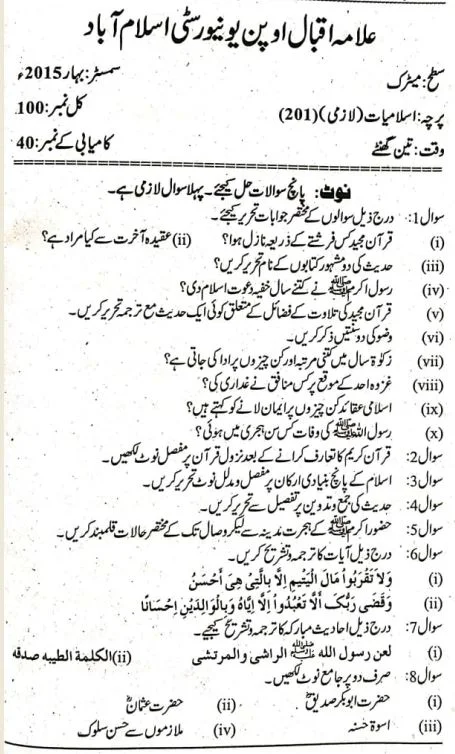 علامہ اقبال اوپن یونیورسٹی اسلام آباد
سطح: میٹرک سمسٹر: بہار 2015ء
پرچہ: اسلامیات (لازمی) (201) کل نمبر: 100
وقت: تین گھنٹے کامیابی کے نمبر: 40
نوٹ: پانچ سوالات حل کیجئے۔ پہلا سوال لازمی ہے۔
سوال 1: درج ذیل سوالوں کے مختصر جوابات تحریر کیجئے۔
(i) قرآن مجید کس فرشتے کے ذریعہ نازل ہوا؟ (ii) عقیدہ آخرت سے کیا مراد ہے؟
(iii) حدیث کی دو مشہور کتابوں کے نام تحریر کریں؟
(iv) رسول اکرم ﷺ نے کتنے سال خفیہ دعوت اسلام دی؟
(v) قرآن مجید کی تلاوت کے فضائل کے متعلق کوئی ایک حدیث مع ترجمہ تحریر کریں۔
(vi) وضو کی دو سنتیں ذکر کریں۔
(vii) زکوٰۃ سال میں کتنی مرتبہ اور کن چیزوں پر ادا کی جاتی ہے؟
(viii) غزوہ احد کے موقع پر کس منافق نے غداری کی؟
(ix) اسلامی عقائد کن چیزوں پر ایمان لانے کو کہتے ہیں؟
(x) رسول اللہ ﷺ کی وفات کس سن ہجری میں ہوئی؟
سوال 2: قرآن کریم کا تعارف کرانے کے بعد نزول قرآن پر مفصل نوٹ لکھیں۔
سوال 3: اسلام کے پانچ بنیادی ارکان پر مفصل و مدلل نوٹ تحریر کریں۔
سوال 4: حدیث کی جمع و تدوین پر تفصیل سے تحریر کریں۔
سوال 5: حضور اکرم ﷺ کے ہجرت مدینہ سے لیکر وصال تک کے مختصر حالات قلمبند کریں۔
سوال 6: درج ذیل آیات کا ترجمہ و تشریح کریں۔
(i) وَلاَ تَقْرَبُواْ مَالَ الْيَتِيمِ إِلاَّ بِالَّتِي هِيَ أَحْسَنُ
(ii) وَقَضَى رَبُّكَ أَلاَّ تَعْبُدُواْ إِلاَّ إِيَّاهُ وَبِالْوَالِدَيْنِ إِحْسَانًا
سوال 7: درج ذیل احادیث مبارکہ کا ترجمہ و تشریح کیجیے۔
(i) لعن رسول الله ﷺ الراشي والمرتشي (ii) الكلمة الطيبه صدقه
سوال 8: صرف دو پر جامع نوٹ لکھیں۔
(i) حضرت ابوبکر صدیقؓ (ii) حضرت عثمانؓ
(iii) اسوۃ حسنہ (iv) ملازموں سے حسن سلوک